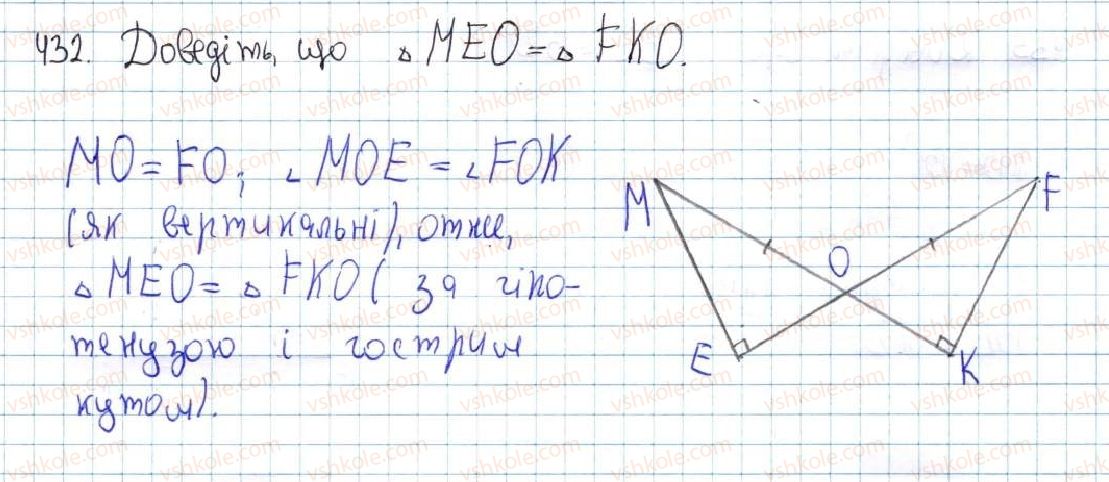 432. Доведіть, що △MEO = △FKO.
MO = FO; ∠MOE = ∠FOK
(як вертикальні), отже,
△MEO = △FKO (за гіпо-
тенузою і гострим
кутом).
M
F
O
E
K